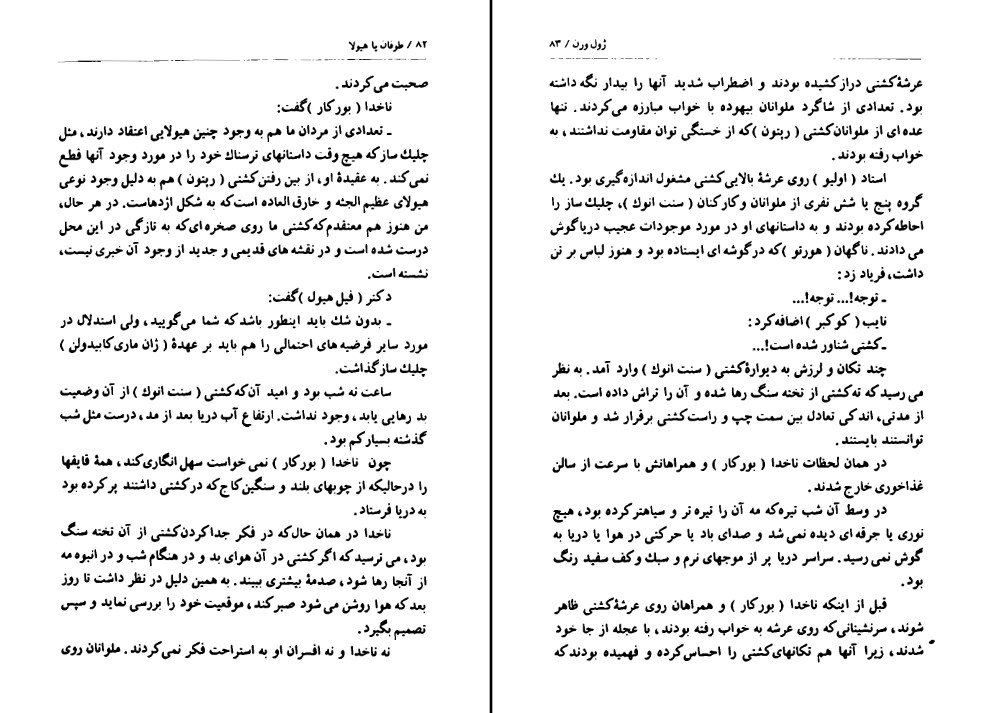 ۸۲ / طوفان یا هیولا
صحبت می‌کردند.
ناخدا ( بورکار ) گفت:
ـ تعدادی از مردان ما هم به وجود چنین هیولایی اعتقاد دارند، مثل
چلیك ساز که هیچ وقت داستانهای ترسناك خود را در مورد وجود آنها قطع
نمی‌کند. به عقیدهٔ او، از بین رفتن کشتی ( رپتون ) هم به دلیل وجود نوعی
هیولای عظیم الجثه و خارق العاده است که به شکل اژدهاست. در هر حال،
من هنوز هم معتقدم که کشتی ما روی صخره ای که به تازگی در این محل
درست شده است و در نقشه های قدیمی و جدید از وجود آن خبری نیست،
نشسته است.
دکتر ( فیل هیول ) گفت:
ـ بدون شك باید اینطور باشد که شما می‌گویید، ولی استدلال در
مورد سایر فرضیه های احتمالی را هم باید بر عهدهٔ ( ژان ماری کابیدولن )
چلیك ساز گذاشت.
ساعت نه شب بود و امید آن که کشتی ( سنت انوك ) از آن وضعیت
بد رهایی یابد، وجود نداشت. ارتفاع آب دریا بعد از مد، درست مثل شب
گذشته بسیار کم بود.
چون ناخدا ( بورکار ) نمی خواست سهل انگاری کند، همهٔ قایقها
را درحالیکه از چوبهای بلند و سنگین کاج که در کشتی داشتند پر کرده بود
به دریا فرستاد.
ناخدا در همان حال که در فکر جدا کردن کشتی از آن تخته سنگ
بود، می ترسید که اگر کشتی در آن هوای بد و در هنگام شب و در انبوه مه
از آنجا رها شود، صدمهٔ بیشتری ببیند. به همین دلیل در نظر داشت تا روز
بعد که هوا روشن می شود صبر کند، موقعیت خود را بررسی نماید و سپس
تصمیم بگیرد.
نه ناخدا و نه افسران او به استراحت فکر نمی‌کردند. ملوانان روی
ژول ورن / ۸۳
عرشهٔ کشتی دراز کشیده بودند و اضطراب شدید آنها را بیدار نگه داشته
بود. تعدادی از شاگرد ملوانان بیهوده با خواب مبارزه می‌کردند. تنها
عده ای از ملوانان کشتی ( رپتون ) که از خستگی توان مقاومت نداشتند، به
خواب رفته بودند.
استاد ( اولیو ) روی عرشهٔ بالایی کشتی مشغول اندازه گیری بود. یك
گروه پنج یا شش نفری از ملوانان و کارکنان ( سنت انوك )، چلیك ساز را
احاطه کرده بودند و به داستانهای او در مورد موجودات عجیب دریا گوش
می دادند. ناگهان ( هورتو ) که در گوشه ای ایستاده بود و هنوز لباس بر تن
داشت، فریاد زد:
ـ توجه!... توجه!...
نایب ( کوکبر ) اضافه کرد:
ـ کشتی شناور شده است!...
چند تکان و لرزش به دیوارهٔ کشتی ( سنت انوك ) وارد آمد. به نظر
می رسید که ته کشتی از تخته سنگ رها شده و آن را تراش داده است. بعد
از مدتی، اندکی تعادل بین سمت چپ و راست کشتی برقرار شد و ملوانان
توانستند بایستند.
در همان لحظات ناخدا ( بورکار ) و همراهانش با سرعت از سالن
غذاخوری خارج شدند.
در وسط آن شب تیره که مه آن را تیره تر و سیاهتر کرده بود، هیچ
نوری یا جرقه ای دیده نمی شد و صدای باد یا حرکتی در هوا یا دریا به
گوش نمی رسید. سراسر دریا پر از موجهای نرم و سبك و کف سفید رنگ
بود.
قبل از اینکه ناخدا ( بورکار ) و همراهان روی عرشهٔ کشتی ظاهر
شوند، سرنشینانی که روی عرشه به خواب رفته بودند، با عجله از جا خود
شدند، زیرا آنها هم تکانهای کشتی را احساس کرده و فهمیده بودند که